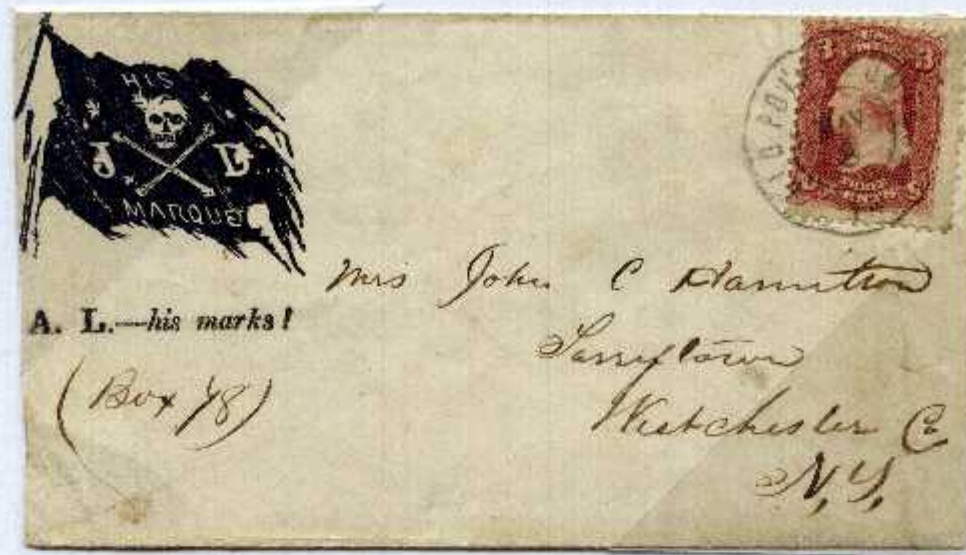 HIS
J D
MARQUE
A. L.—his marks!
(Box 48)
Mrs John C Hamilton
Tarrytown
Westchester Co
N, Y,
3 3